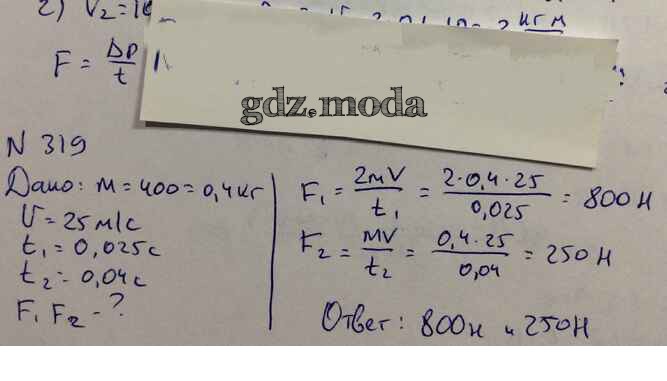 2) V₂=
F = Δp/t
gdz.moda
N 319
Дано: m = 400 = 0,4 кг
V = 25 м/с
t₁ = 0,025 с
t₂ = 0,04 с
F₁ F₂ - ?
F₁ = 2mV/t₁ = 2·0,4·25/0,025 = 800 Н
F₂ = mV/t₂ = 0,4·25/0,04 = 250 Н
Ответ: 800 н и 250 Н